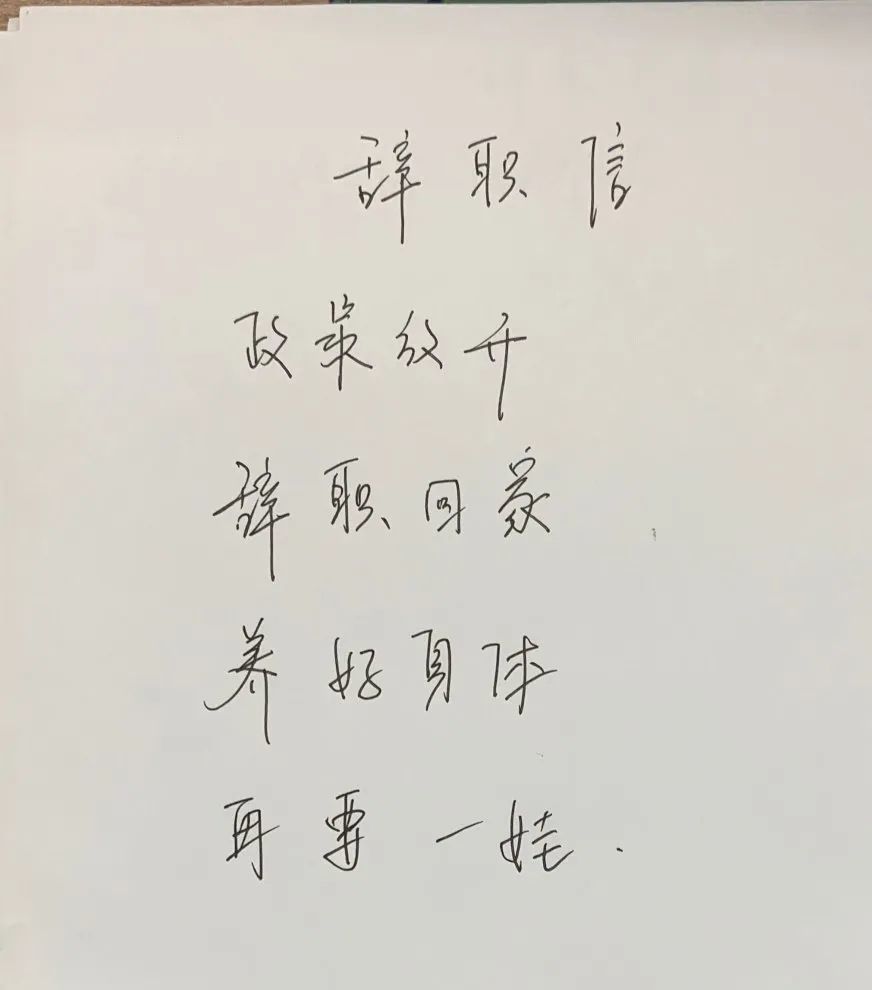 辞职信
政策放开
辞职回家
养好身体
再要一娃.